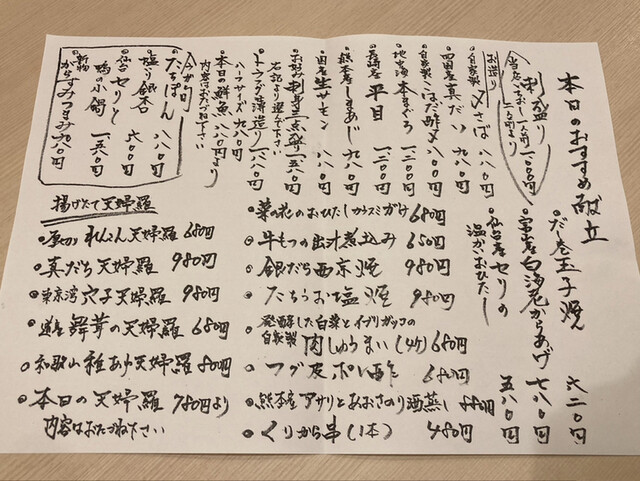 本日のおすすめ献立
刺盛り
一人前一、一〇〇円
お造り
自家製〆さば 八八〇円
四国産真だい 九八〇円
自家製こはだ酢〆 八八〇円
地中海本まぐろ 一二〇〇円
長崎産平目 一二〇〇円
熊本産しまあじ 九八〇円
国産生サーモン 八八〇円
お好み刺身三点盛 一五八〇円
右記より選んで下さい
トラフグ薄造り 一八八〇円
ハーフサイズ 九八〇円
本日の鮮魚 八八〇円より
内容はおたづね下さい
今が旬
たちぽん 八八〇円
塩いり銀杏
仙台セリと
鴨の小鍋 一五八〇円
からすみつまみ 九八〇円
だし巻玉子焼 六二〇円
白海老からあげ 七八〇円
仙台産セリの
温かいおひたし 五八〇円
揚げたて天婦羅
れんこん天婦羅 680円
真だち天婦羅 980円
東京湾穴子天婦羅 980円
舞茸の天婦羅 680円
和歌山稚あゆ天婦羅 880円
本日の天婦羅 780円より
内容はおたづね下さい
菜の花のおひたしカラスミがけ 680円
牛もつの出汁煮込み 650円
銀だら西京焼 980円
たちうお塩焼 980円
発酵した白菜とイブリガッコの
自家製肉しゅうまい(4ヶ) 680円
フグ皮ポン酢 680円
熊本産アサリとあおさのり酒蒸し 880円
くりから串(1本) 480円